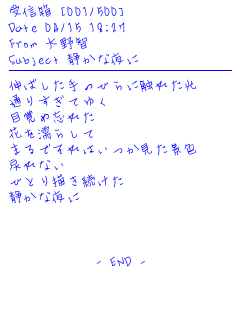 受信箱 [001/500]
Date 04/15 18:27
From 大野智
Subject 静かな夜に
伸ばした手のひらに触れた光
通りすぎてゆく
目覚め忘れた
花を濡らして
まるですれはいつか見た景色
戻れない
ひとり描き続けた
静かな夜に
- END -